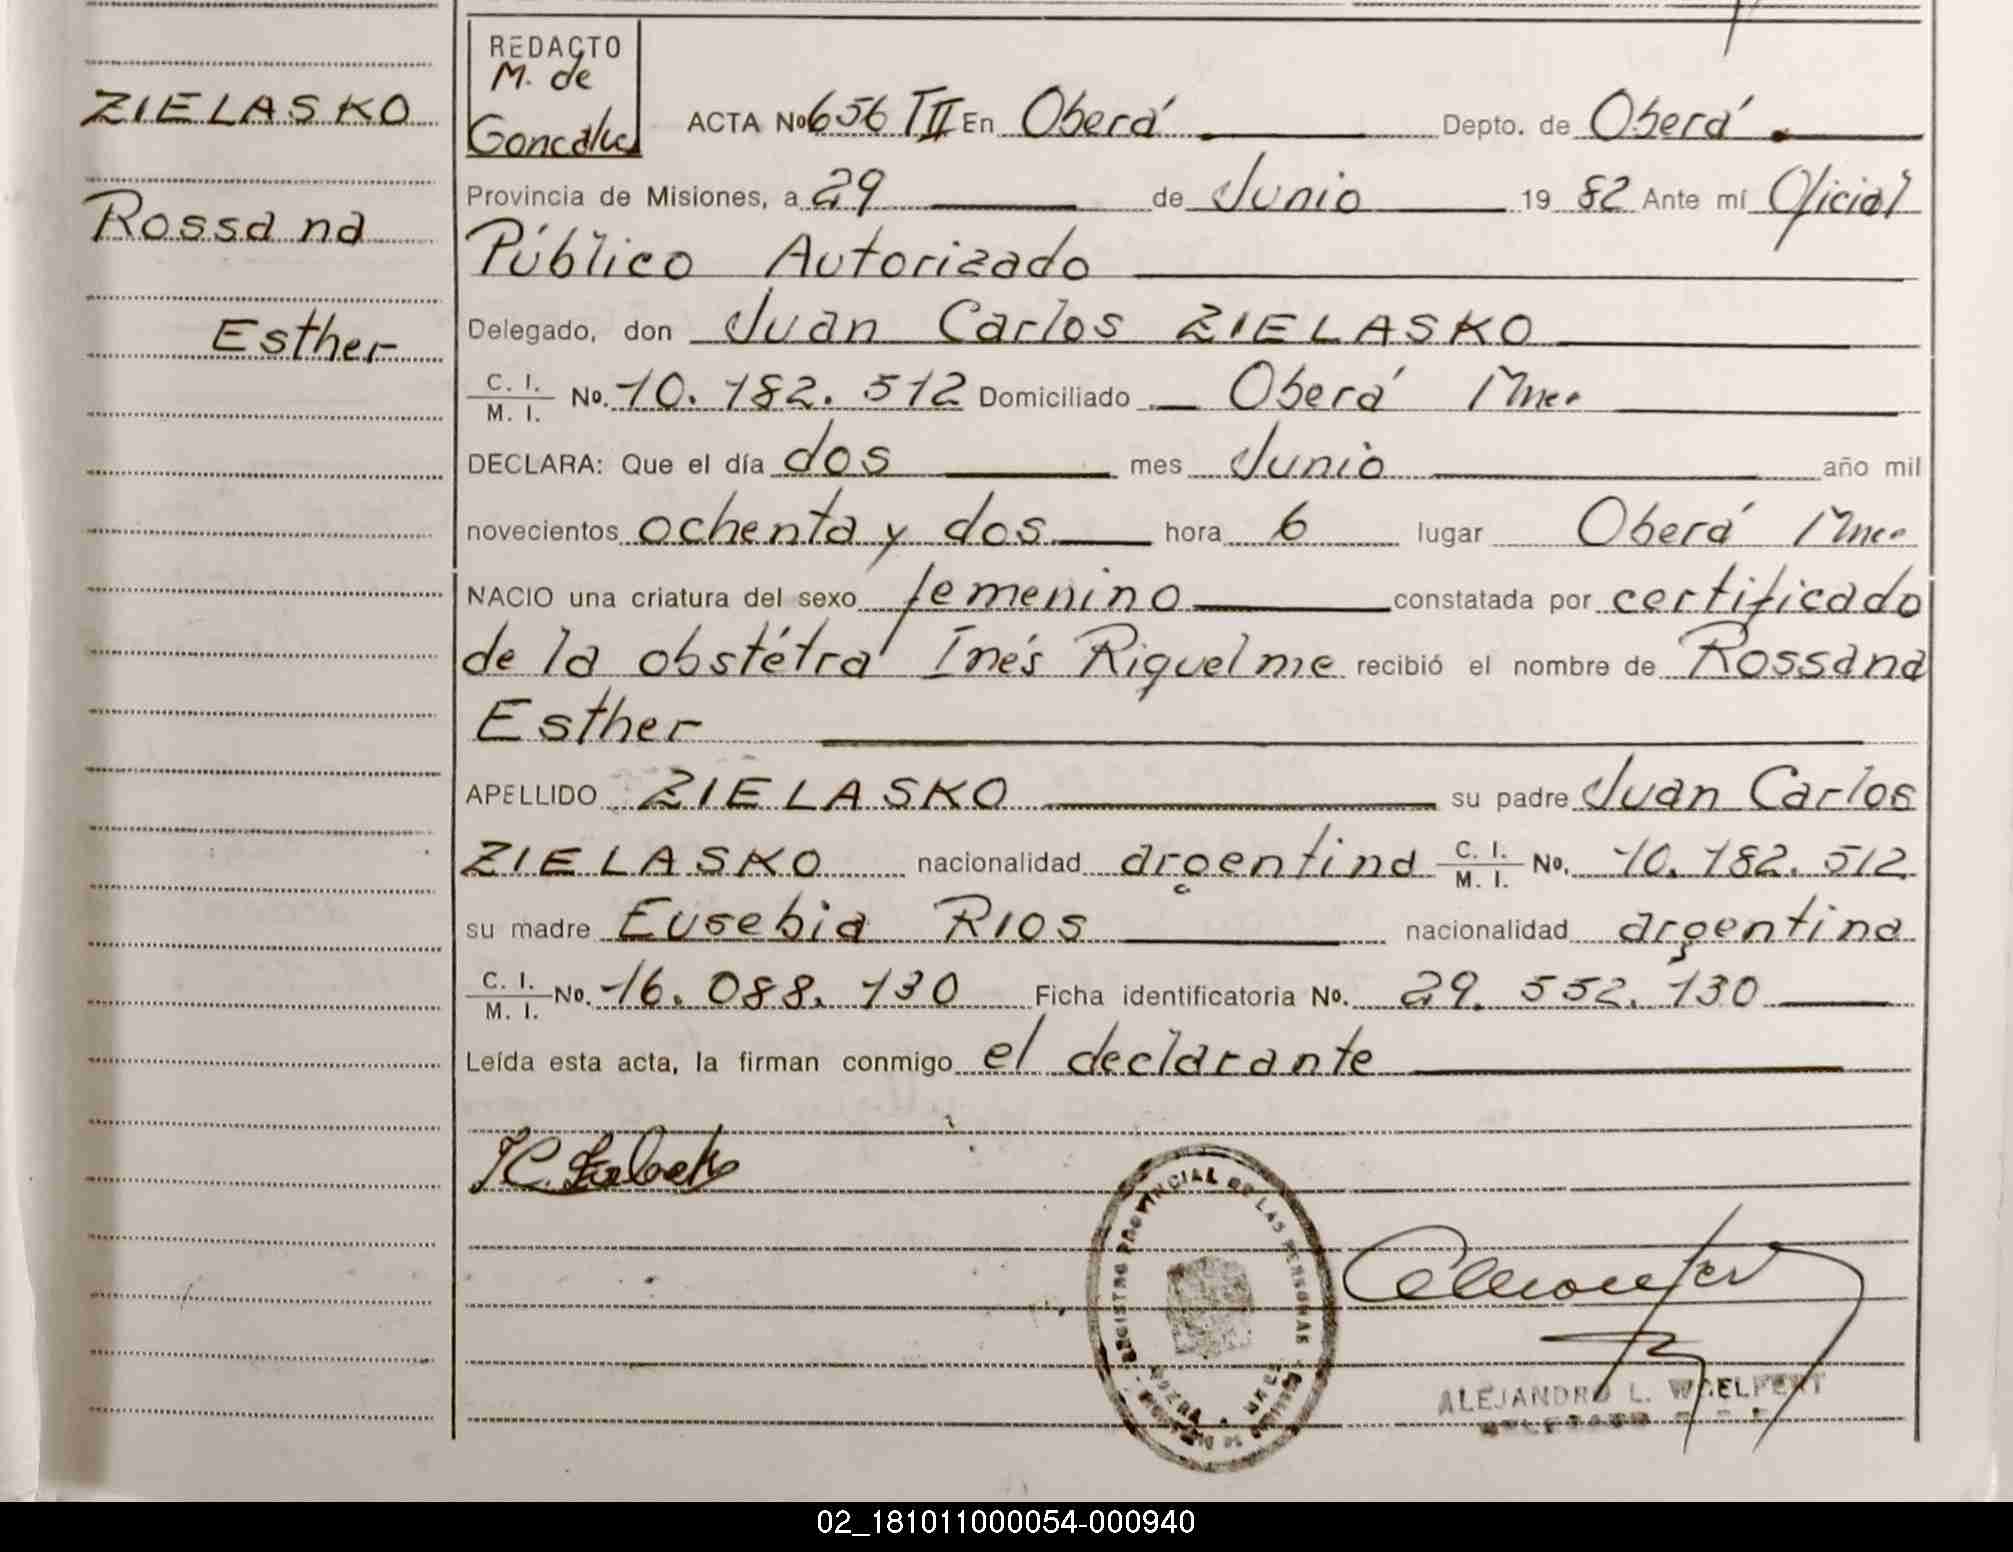 ZIELASKO
Rossana
Esther
REDACTO
M. de
ACTA No 656 TII En Oberá Depto. de Oberá
Provincia de Misiones, a 29 de Junio 19 82 Ante mí Oficial
Público Autorizado
Delegado, don Juan Carlos ZIELASKO
C. I.
M. I. No. 10.182.512 Domiciliado Oberá Mnes
DECLARA: Que el día dos mes Junio año mil
novecientos ochenta y dos hora 6 lugar Oberá Mnes
NACIO una criatura del sexo femenino constatada por certificado
de la obstétra Inés Riquelme recibió el nombre de Rossana
Esther
APELLIDO ZIELASKO su padre Juan Carlos
ZIELASKO nacionalidad argentina C. I. M. I. No. 10.182.512
su madre Eusebia RIOS nacionalidad argentina
C. I.
M. I. No. 16.088.130 Ficha identificatoria No. 29.552.130
Leída esta acta, la firman conmigo el declarante
REGISTRO PROVINCIAL DE LAS PERSONAS
ALEJANDRO L. WOELFERT
02_181011000054-000940